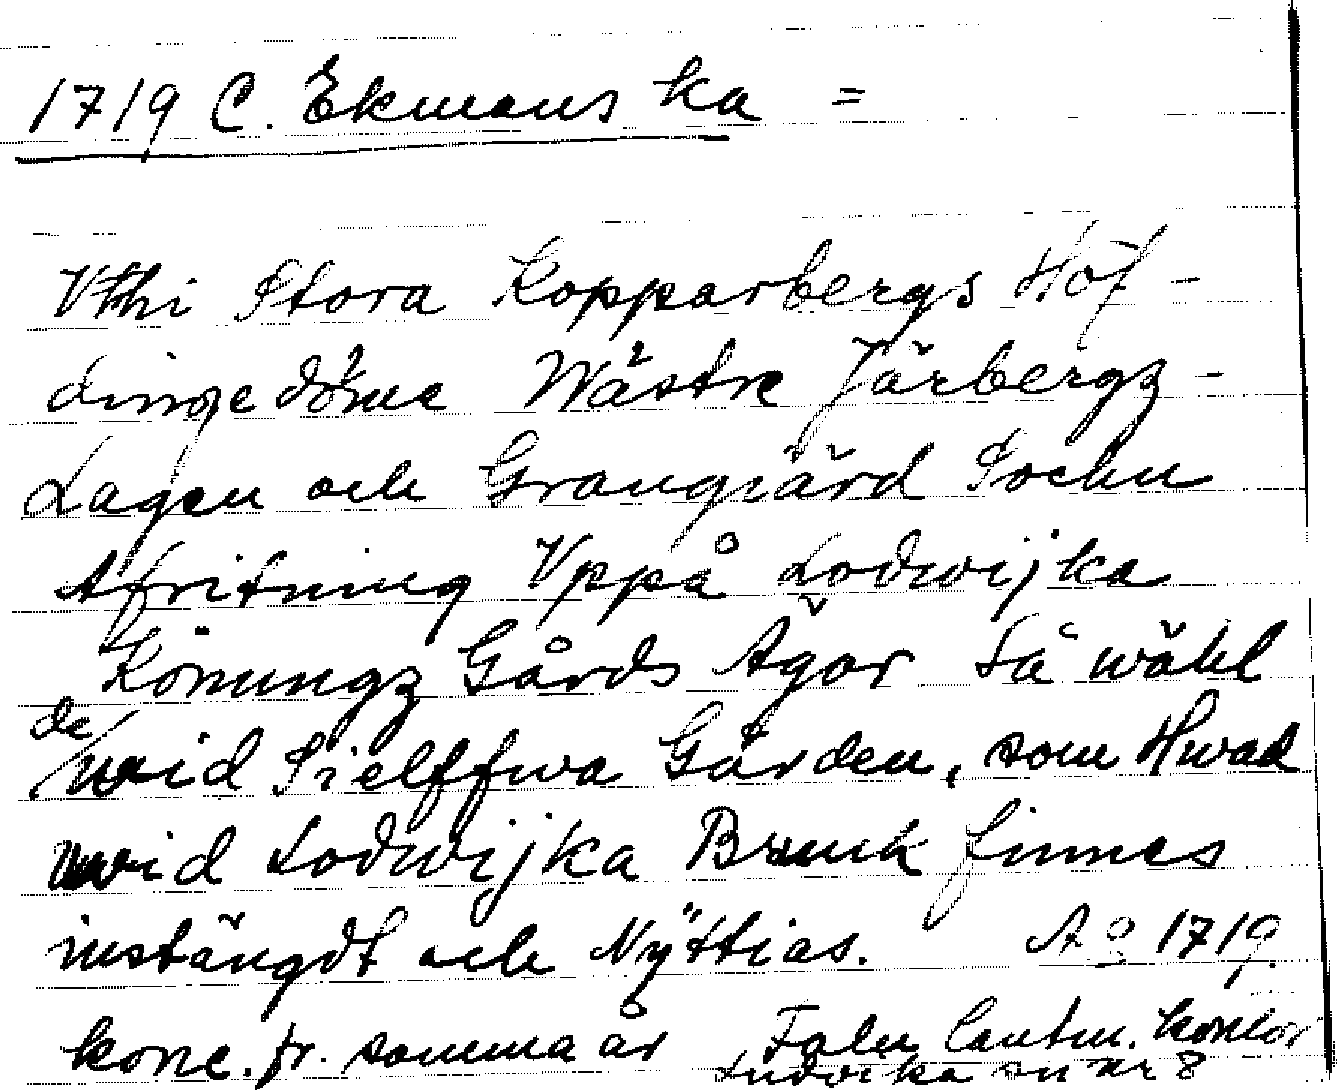 1719 C. Ekmans ka =
Vthi Stora Kopparbergs Höf-
dingedöme Wästre Järbergz-
Lagen och Grangiärd Sochn
Afritning Vppå Lodwijka
Konungz Gårds Ägor Så wähl
de
wid Sielffwa Gården, som Hwad
wid Lodwijka Bruuk finnes
instängdt och Nÿttias. Aº 1719.
konc. fr. samma år Falu lantm. kontor
Ludvika sn nr 8